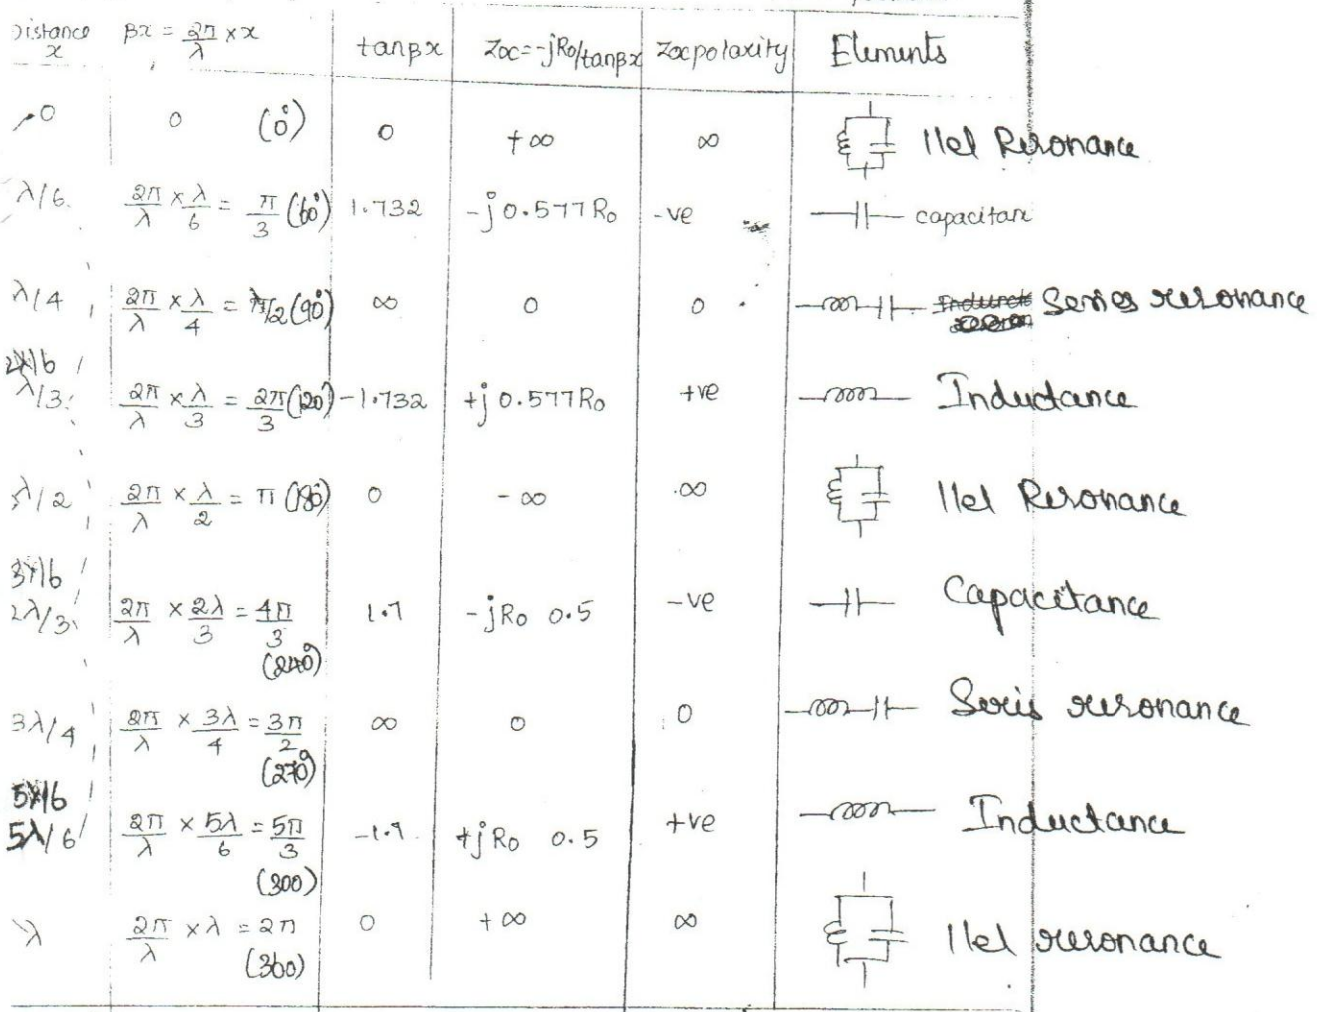 Distance x βx = 2π/λ × x tanβx Zoc=-jRo/tanβx Zoc polarity Elements
0 0 (0°) 0 +∞ ∞ llel Resonance
λ/6 2π/λ × λ/6 = π/3 (60°) 1.732 -j0.577Ro -ve capacitan
λ/4 2π/λ × λ/4 = π/2 (90°) ∞ 0 0 Series resonance
λ/3 2π/λ × λ/3 = 2π/3 (120°) -1.732 +j0.577Ro +ve Inductance
λ/2 2π/λ × λ/2 = π (180°) 0 -∞ ∞ llel Resonance
2λ/3 2π/λ × 2λ/3 = 4π/3 (240°) 1.7 -jRo 0.5 -ve Capacitance
3λ/4 2π/λ × 3λ/4 = 3π/2 (270°) ∞ 0 0 Seris resonance
5λ/6 2π/λ × 5λ/6 = 5π/3 (300) -1.7 +jRo 0.5 +ve Inductance
λ 2π/λ × λ = 2π (360) 0 +∞ ∞ llel resonance